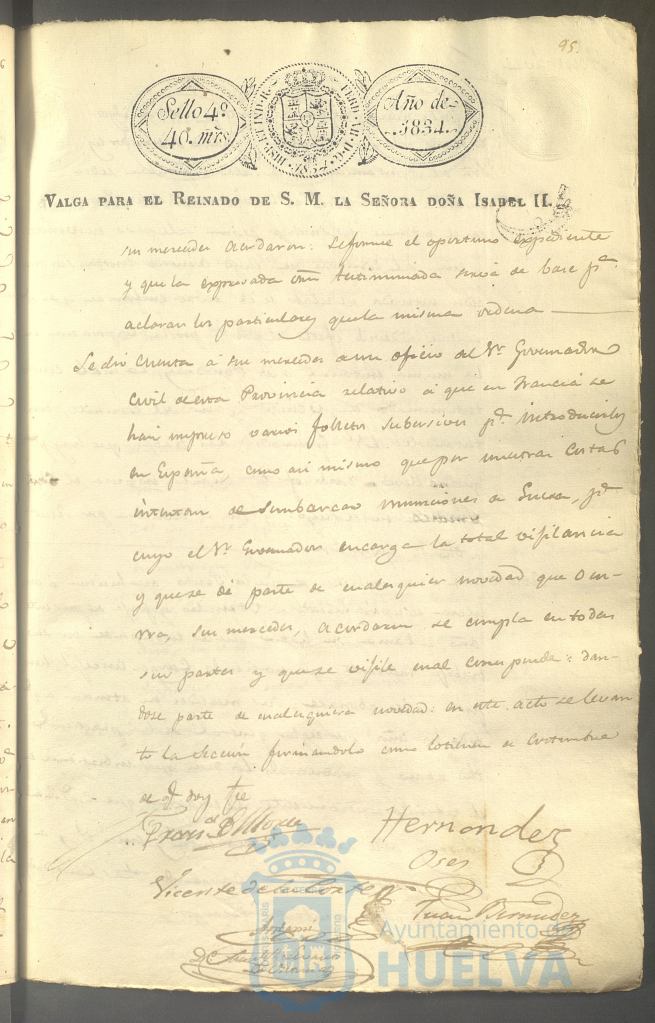 95.
Sello 4º
40. mrs
HISP. ET IND. R. FERD. VII. D. G. 1834
Año de
1834.
VALGA PARA EL REINADO DE S. M. LA SEÑORA DOÑA ISABEL II.
sus mercedes acordaron: se forme el oportuno expediente
y que la expresada testimoniada sirva de base pª
aclarar los particulares que la misma ordena
Se dio cuenta a sus mercedes de un oficio del Sr. Governador
Civil de esta Provincia relativo a que en Francia se
han impreso varios folletos subersivos pª introducirlos
en España, como asi mismo que por nuestras costas
intentan desembarcar municiones de Guerra, pª
cuyo el Sr. Governador encarga la total vigilancia
y que se dé parte de cualesquier novedad que ocur-
rra, sus mercedes, acordaron se cumpla en todas
sus partes y que se vigile cual corresponde: dan-
dose parte de cualesquiera novedad: en este acto se levan
to la sección firmandolo como lo tienen de costumbre
de q. doy fe
Hernandez
Oses
Vicente de la Corte
Juan Bermudez
Ayuntamiento de
HUELVA